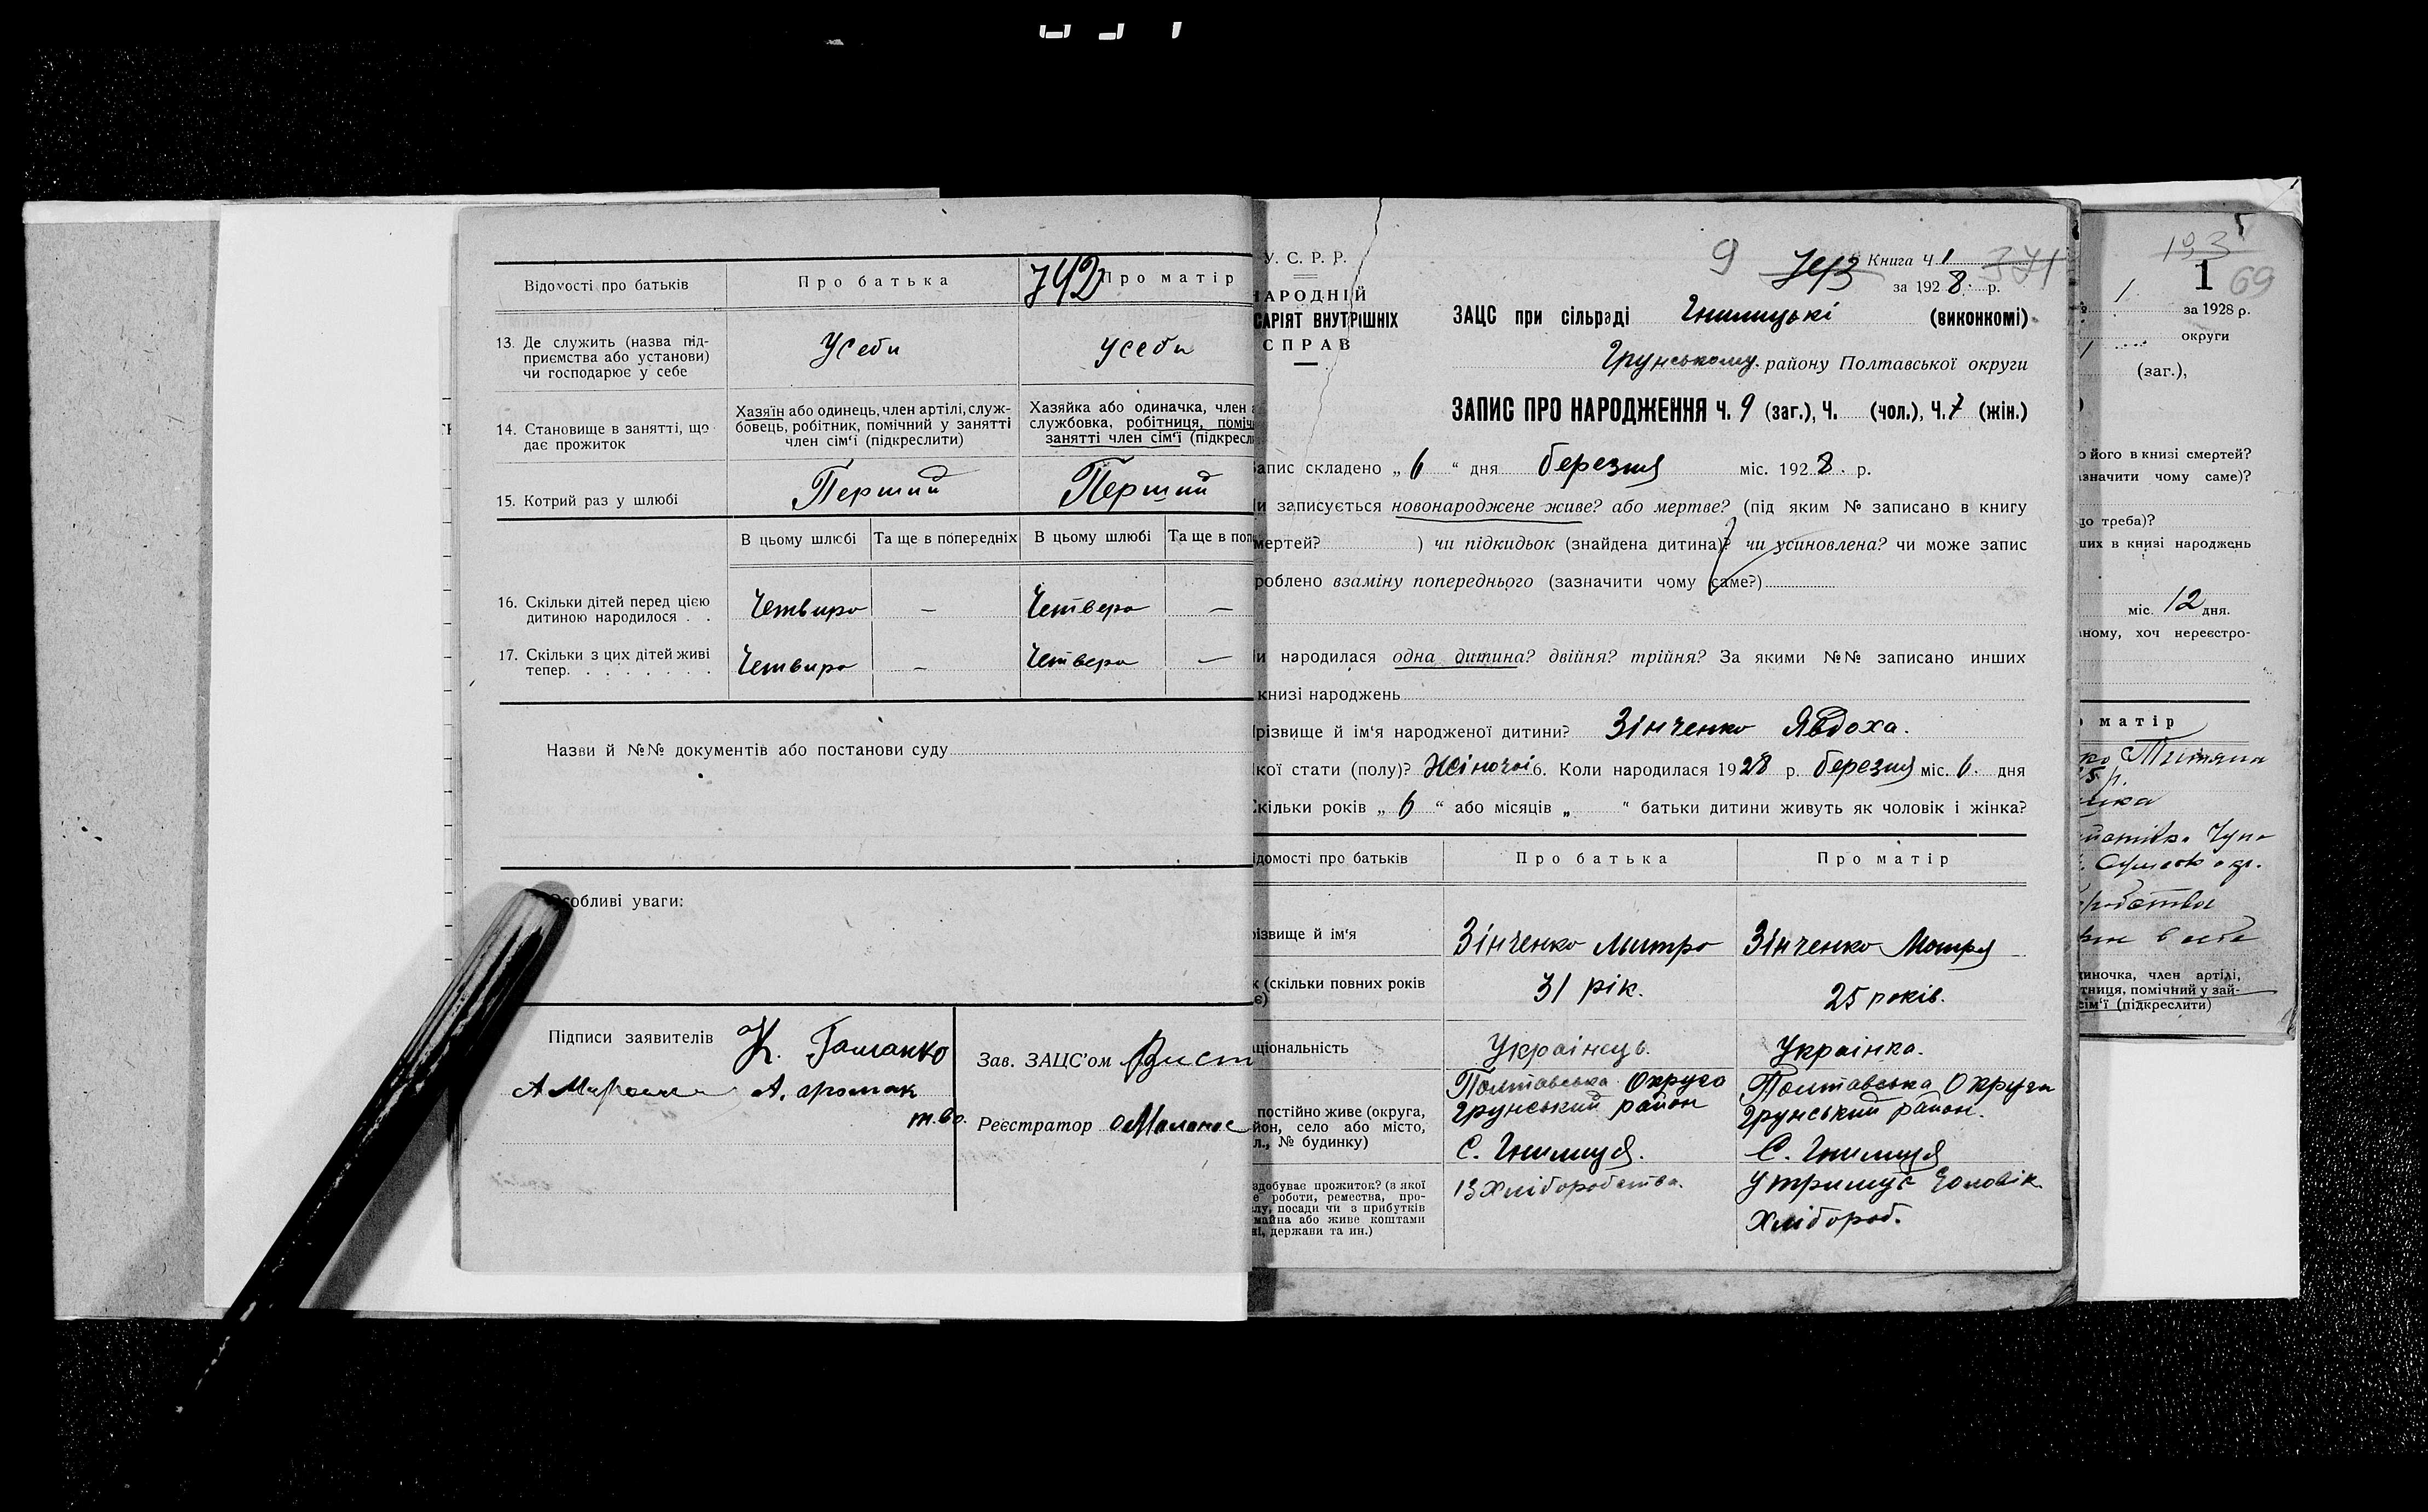 742
Відомості про батьків
Про батька
Про матір
13. Де служить (назва під-
приємства або установи)
чи господарює у себе
Усеби
Усеби
14. Становище в занятті, що
дає прожиток
Хазяїн або одинець, член артілі, служ-
бовець, робітник, помічний у занятті
член сім'ї (підкреслити)
Хазяйка або одиначка, член
службовка, робітниця, поміч
занятті член сім'ї (підкресл
15. Котрий раз у шлюбі
Перший
Перший
В цьому шлюбі
Та ще в попередніх
В цьому шлюбі
Та ще в поп
16. Скільки дітей перед цією
дитиною народилося . .
Четвиро
—
Четверо
—
17. Скільки з цих дітей живі
тепер. . . . . . . .
Четвиро
—
Четверо
—
Назви й №№ документів або постанови суду
Особливі уваги:
Підписи заявителів
Зав. ЗАЦС'ом
Реєстратор
У. С. Р. Р.
НАРОДНІЙ
САРІЯТ ВНУТРІШНІХ
СПРАВ
9
743
Книга Ч 1
371
за 1928. р.
ЗАЦС при сільраді Гнилицькі (виконкомі)
Грунському району Полтавської округи
ЗАПИС ПРО НАРОДЖЕННЯ Ч. 9 (заг.), Ч. (чол.), Ч. 7 (жін.)
запис складено „ 6 “ дня березня міс. 1928. р.
и записується новонароджене живе? або мертве? (під яким № записано в книгу
мертей? ) чи підкидьок (знайдена дитина)? чи усиновлена? чи може запис
роблено взаміну попереднього (зазначити чому саме?)
и народилася одна дитина? двійня? трійня? За якими №№ записано инших
книзі народжень
різвище й ім'я народженої дитини? Зінченко Явдоха.
кої стати (полу)? Жіночоі 6. Коли народилася 1928 р. березня міс. 6. дня
кільки років „ 6 “ або місяців „ “ батьки дитини живуть як чоловік і жінка?
ідомості про батьків
Про батька
Про матір
ізвище й ім'я
Зінченко Митро
Зінченко Мотря
к (скільки повних років
є)
31 рік.
25 років.
ціональність
Українець.
Українка.
постійно живе (округа,
йон, село або місто,
л., № будинку)
Полтавська Округа
Грунський район
С. Гнилиця.
Полтавська Округа
Грунський район.
С. Гнилиця
здобуває прожиток? (з якої
е роботи, ремества, про-
лу, посади чи з прибутків
майна або живе коштами
ні, держави та ин.)
Із Хліборобства.
Утримує Чоловік
Хлібороб.
193
1
69
1
за 1928 р.
округи
(заг.),
о його в книзі смертей?
азначити чому саме)?
що треба)?
ших в книзі народжень
міс. 12 дня.
ному, хоч нереєстро-
матір
диночка, член артілі,
тниця, помічний у зай-
сім'ї (підкреслити)